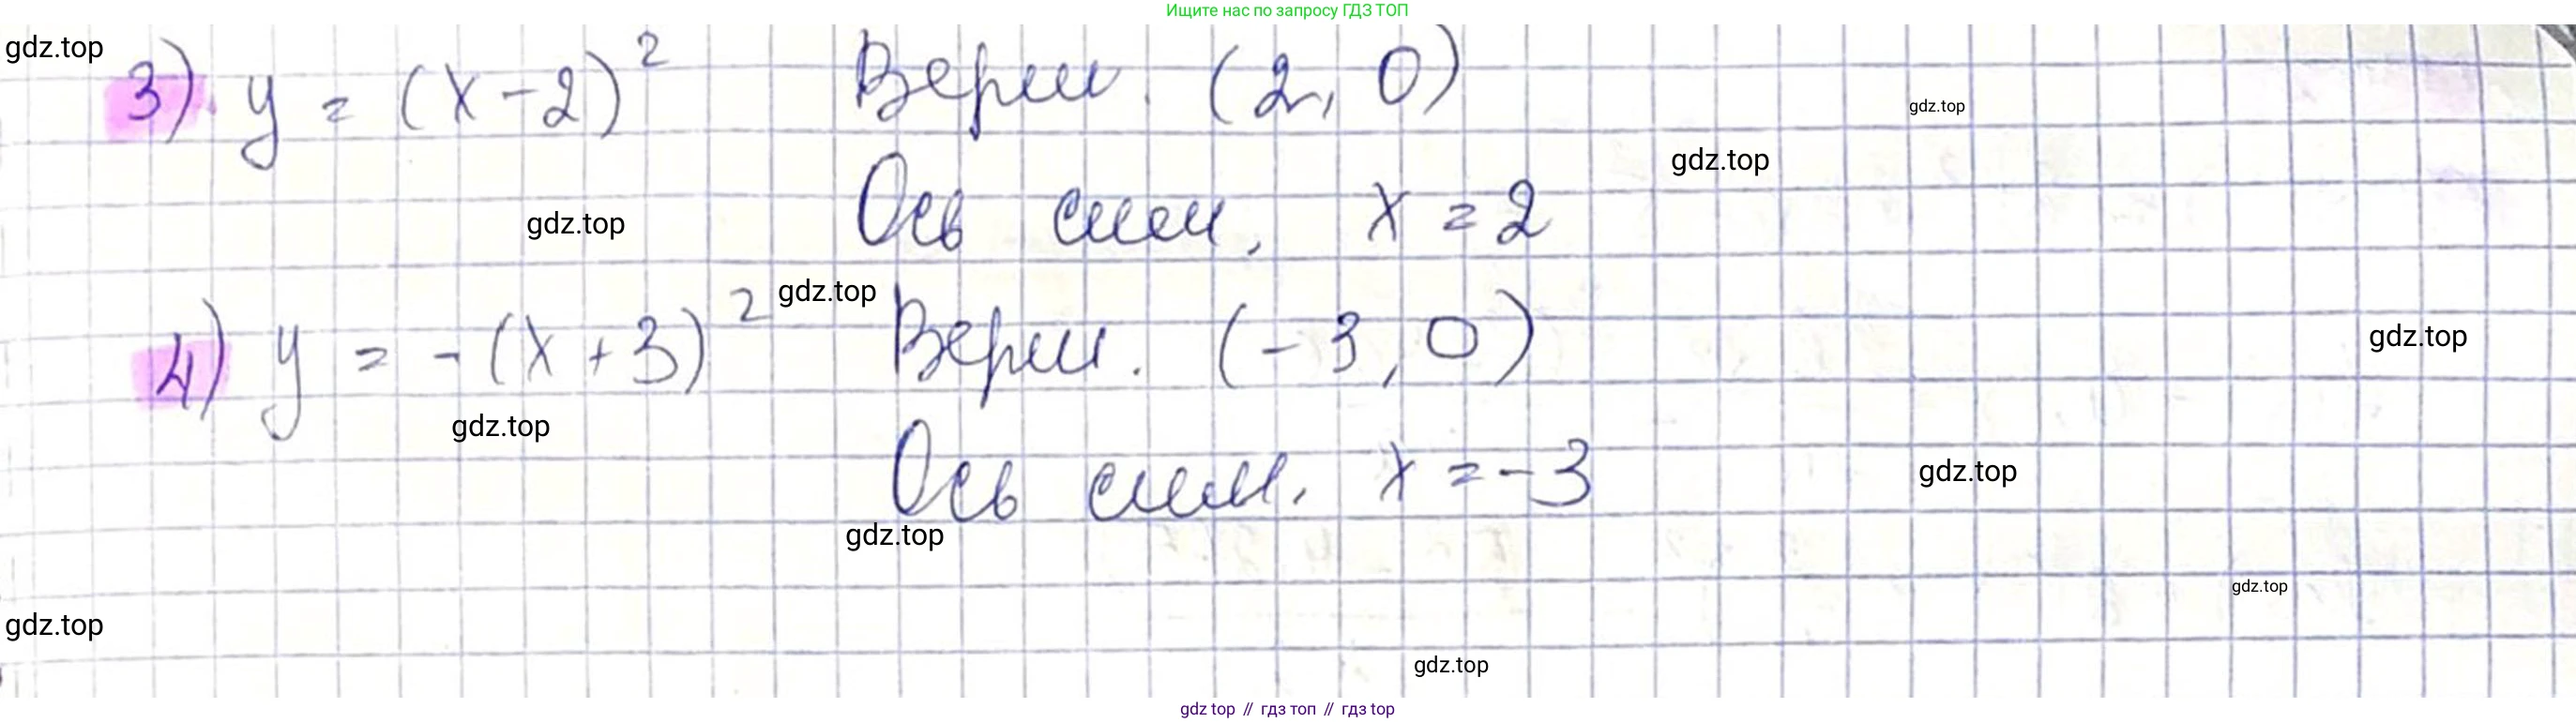 Ищите нас по запросу ГДЗ ТОП
gdz.top
3) y = (x-2)² Верш. (2, 0)
gdz.top
gdz.top
Ось сим. x = 2
gdz.top
gdz.top
4) y = -(x+3)² Верш. (-3, 0)
gdz.top
gdz.top
Ось сим. x = -3
gdz.top
gdz.top
gdz.top
gdz.top
gdz.top
gdz top // гдз топ // гдз top